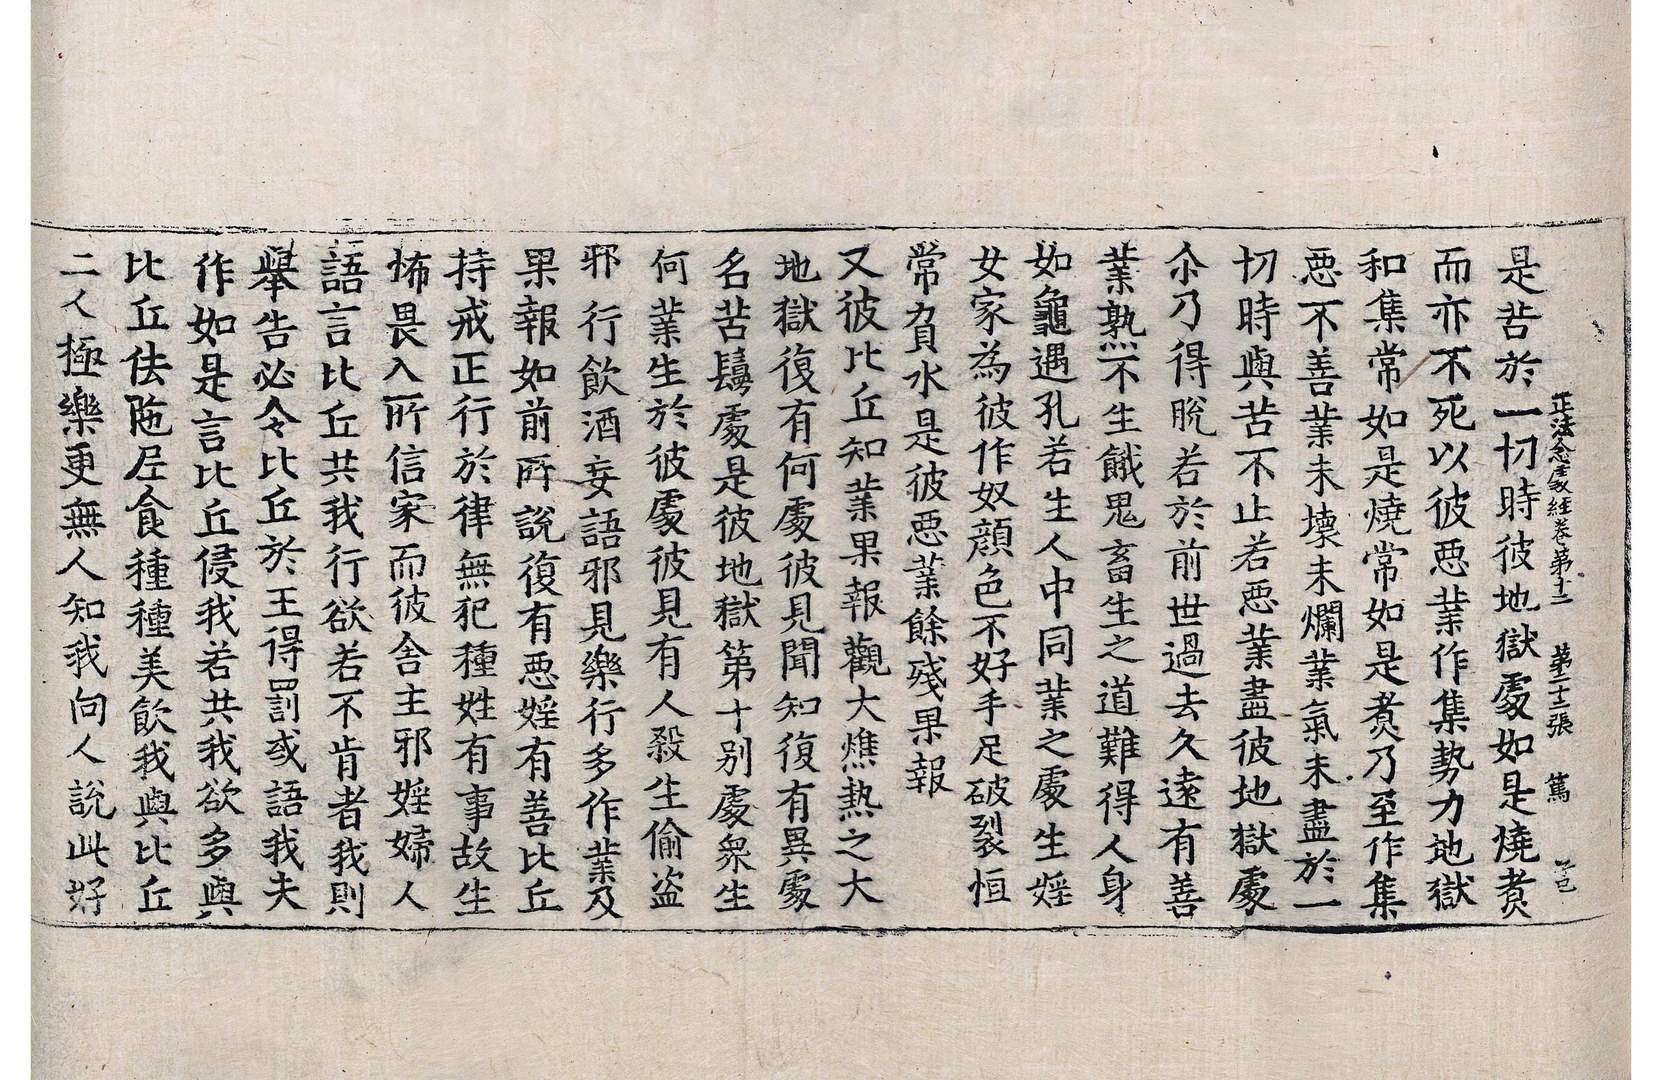 正法念處經卷第十二 第二十二張 篤
是苦於一切時彼地獄處如是燒煮
而亦不死以彼惡業作集勢力地獄
和集常如是燒常如是煮乃至作集
惡不善業未壞未爛業氣未盡於一
切時與苦不止若惡業盡彼地獄處
尒乃得脫若於前世過去久遠有善
業熟不生餓鬼畜生之道難得人身
如龜遇孔若生人中同業之處生婬
女家為彼作奴顏色不好手足破裂恒
常負水是彼惡業餘殘果報
又彼比丘知業果報觀大燋熱之大
地獄復有何處彼見聞知復有異處
名苦鬘處是彼地獄第十別處衆生
何業生於彼處彼見有人殺生偷盜
邪行飲酒妄語邪見樂行多作業及
果報如前所說復有惡婬有善比丘
持戒正行於律無犯種姓有事故生
怖畏入所信家而彼舍主邪婬婦人
語言比丘共我行欲若不肯者我則
舉告必令比丘於王得罰或語我夫
作如是言比丘侵我若共我欲多與
比丘佉陁尼食種種美飲我與比丘
二人極樂更無人知我向人說此好